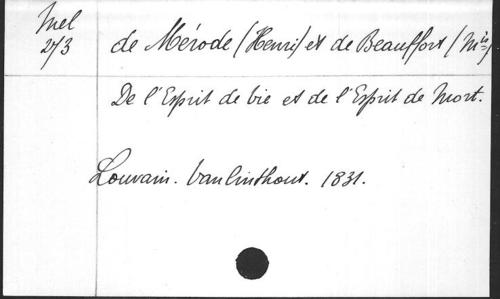 Mel
273
de Mérode (Henri) et de Beauffort (Mis)
De l'Esprit de vie et de l'Esprit de Mort.
Louvain. Vanlinthout. 1831.